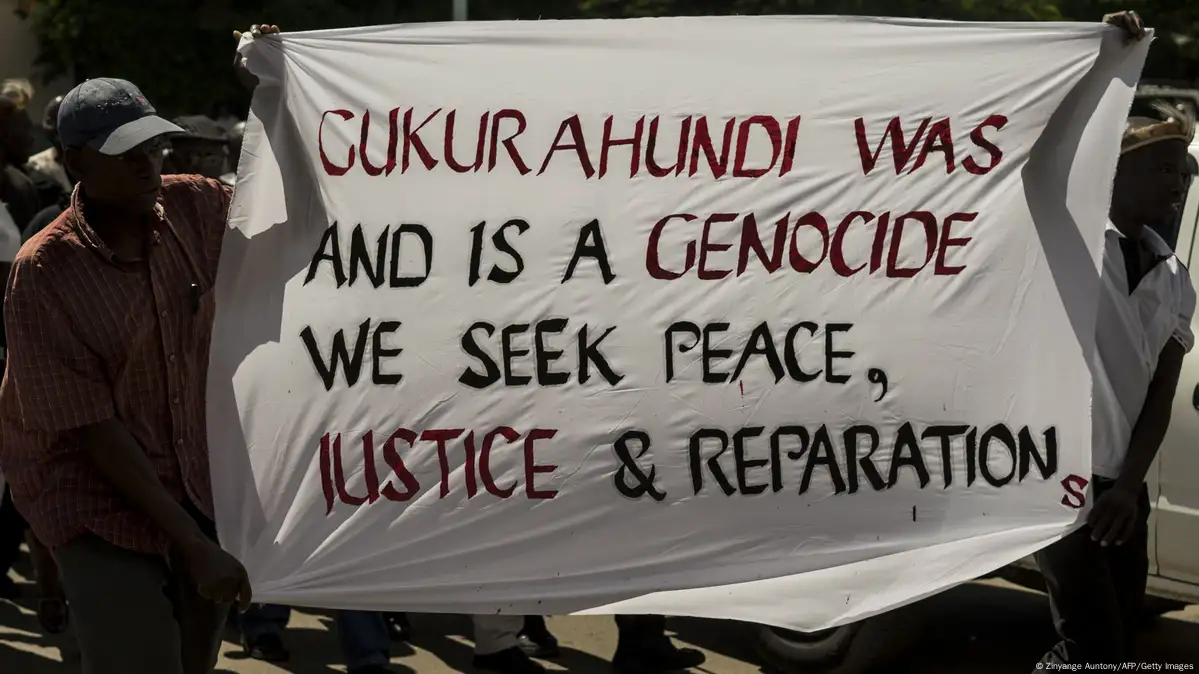 GUKURAHUNDI WAS
AND IS A GENOCIDE
WE SEEK PEACE,
JUSTICE & REPARATIONS
© Zinyange Auntony/AFP/Getty Images